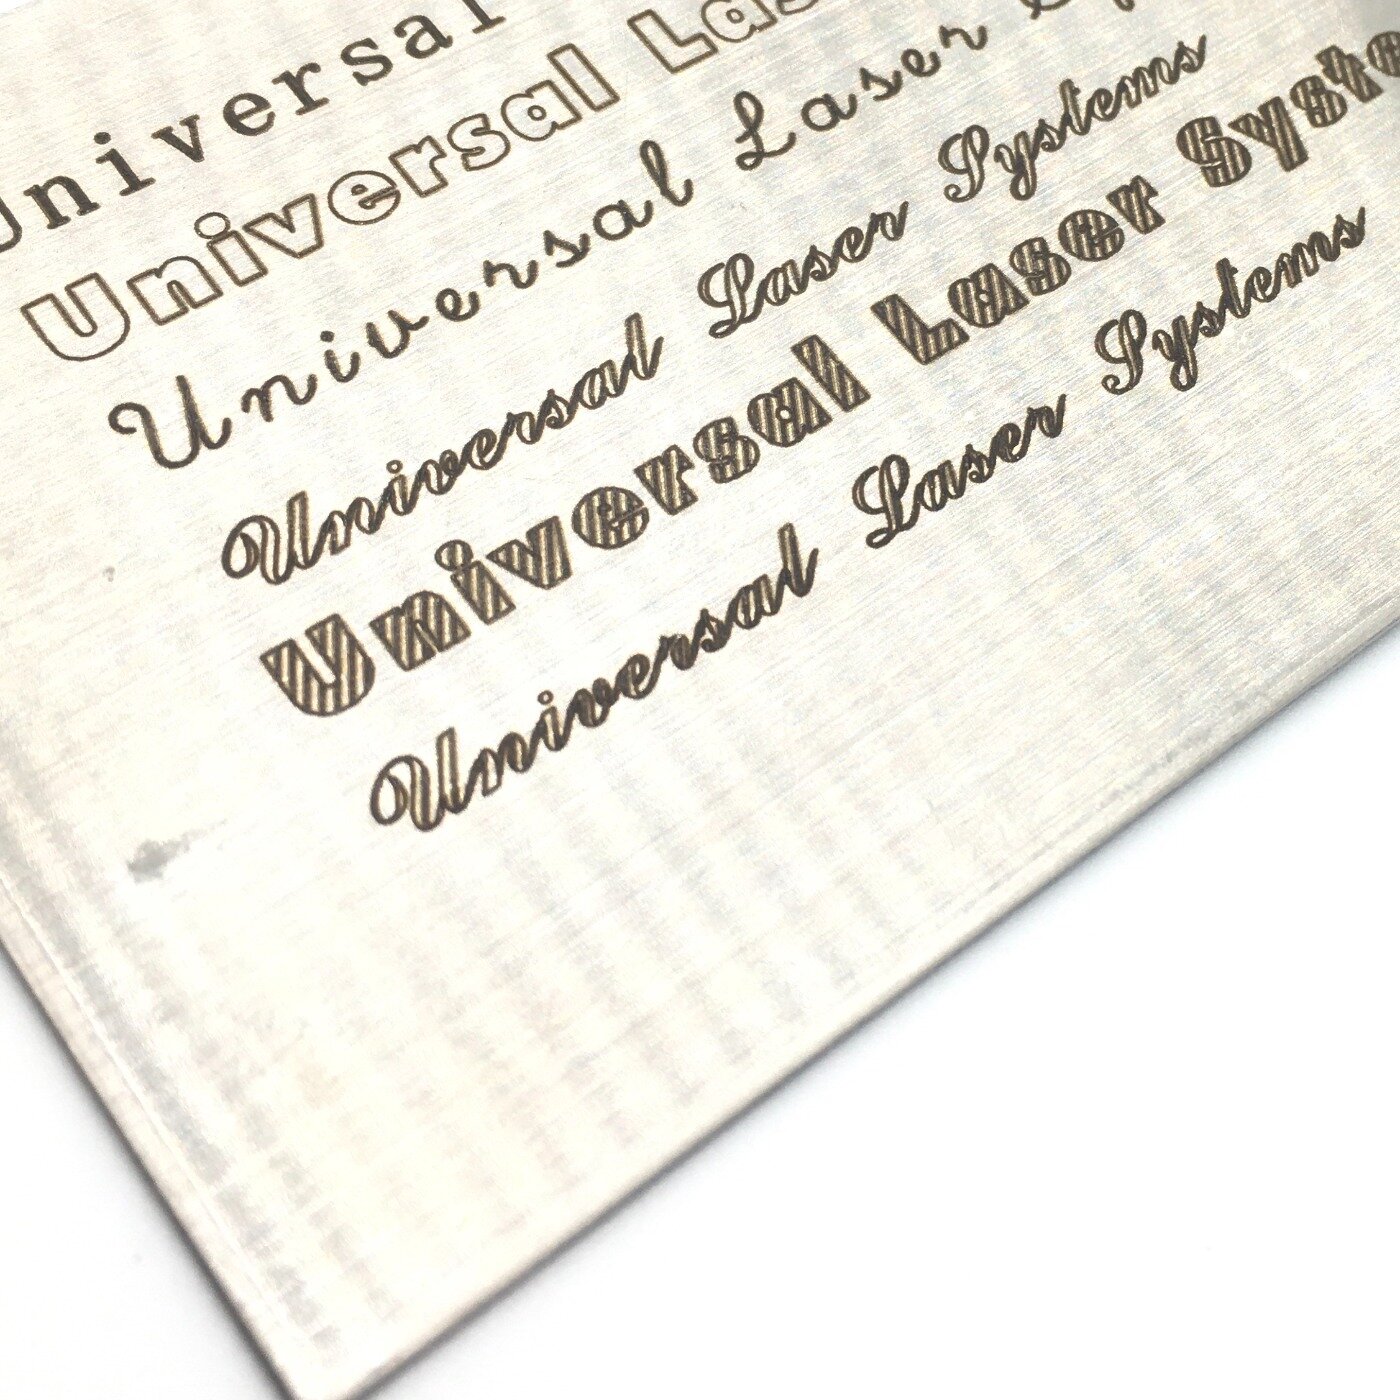 Universal
Universal Las
Universal Laser
Universal Laser Systems
Universal Laser Syste
Universal Laser Systems